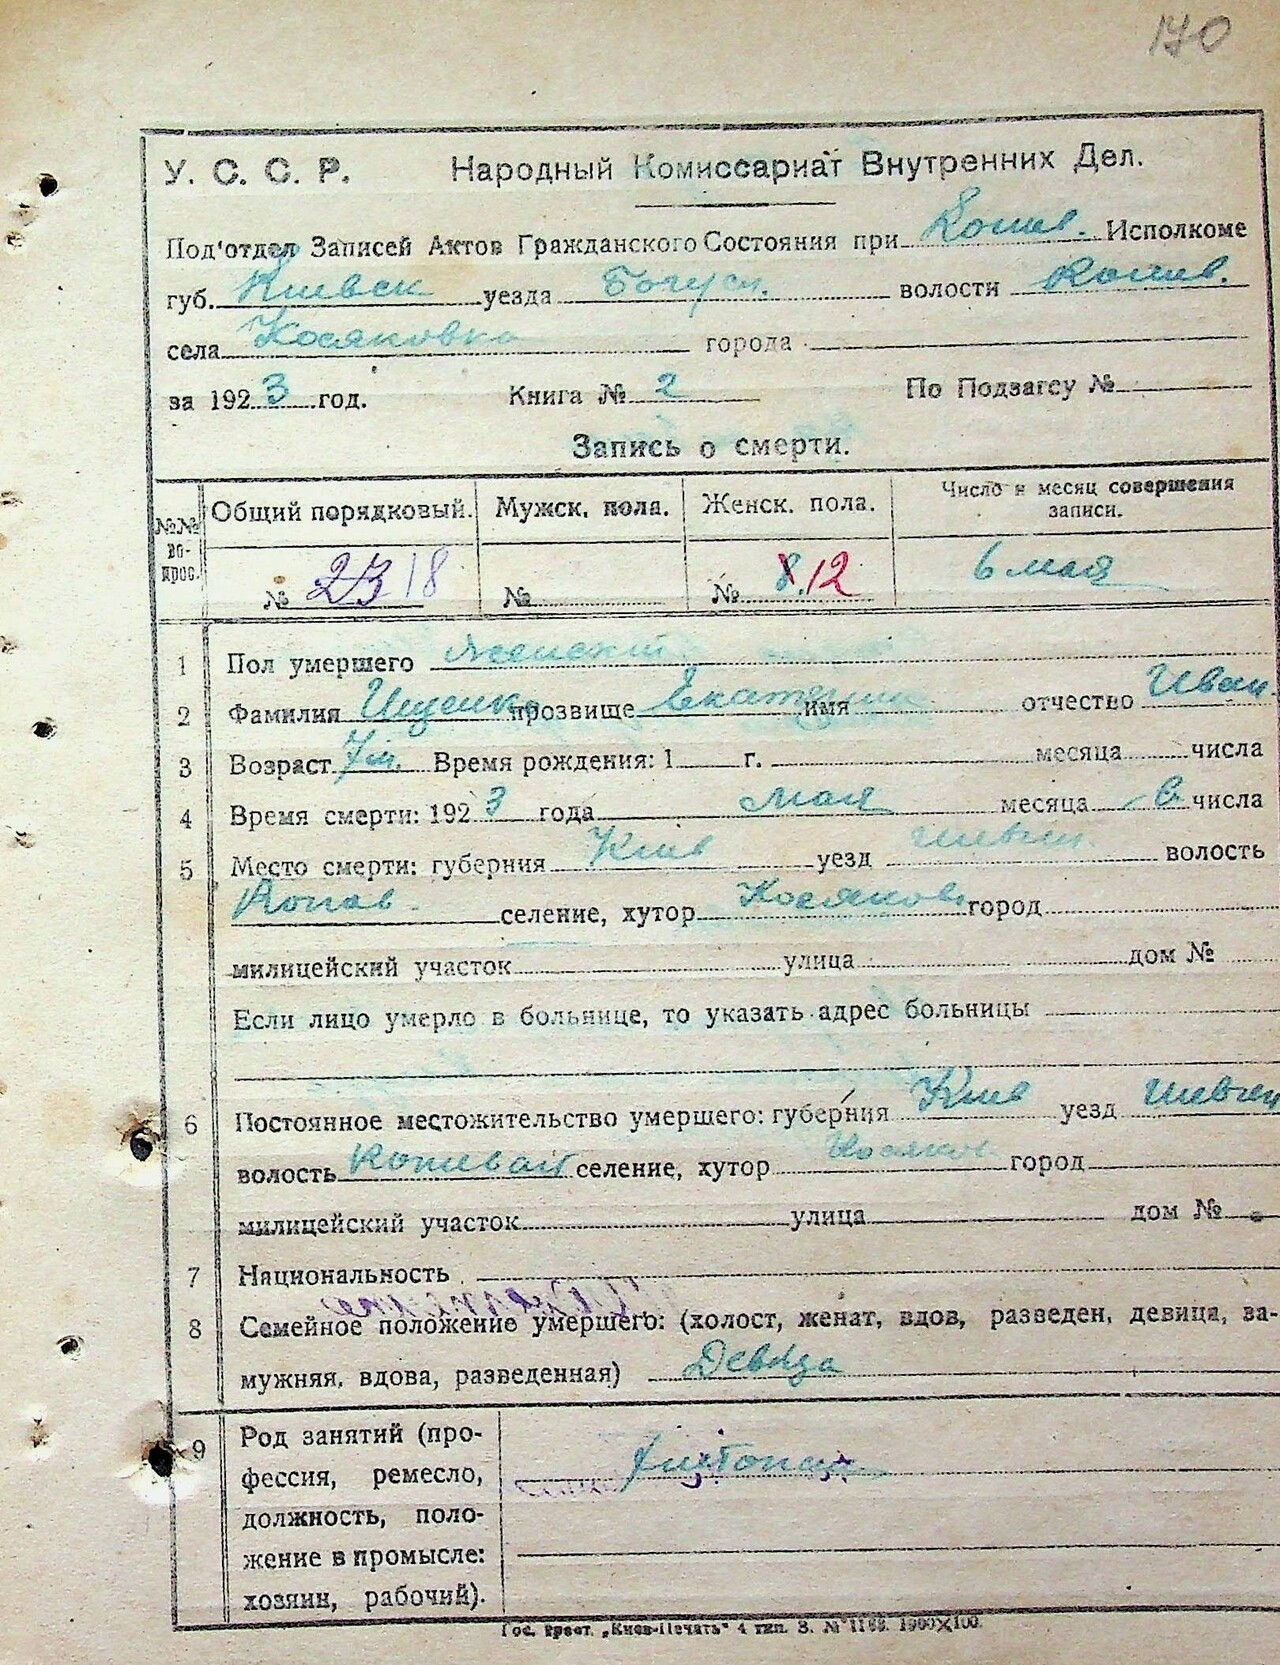 170
У. С. С. Р. Народный Комиссариат Внутренних Дел.
Под'отдел Записей Актов Гражданского Состояния при Кошев. Исполкоме
губ. Киевск уезда Богусл. волости Кошев.
села Косяковка города
за 1923 год. Книга № 2 По Подзагсу №
Запись о смерти.
№№ вопрос. Общий порядковый. Мужск. пола. Женск. пола. Число и месяц совершения записи.
№ 23 18 № № 8. 12 6 мая
1 Пол умершего Женский
2 Фамилия Ищенко прозвище Екатерина имя отчество Иван.
3 Возраст 7 м. Время рождения: 1 г. месяца числа
4 Время смерти: 1923 года мая месяца 6 числа
5 Место смерти: губерния Киев уезд Шевчен. волость
селение, хутор Косяков. город
милицейский участок улица дом №
Если лицо умерло в больнице, то указать адрес больницы
6 Постоянное местожительство умершего: губерния Киев уезд Шевчен
волость Кошеват селение, хутор Косяков. город
милицейский участок улица дом №
7 Национальность
8 Семейное положение умершего: (холост, женат, вдов, разведен, девица, за-
мужняя, вдова, разведенная) Девица
9 Род занятий (про-
фессия, ремесло,
должность, поло-
жение в промысле:
хозяин, рабочий).
Гос. трест. „Киев-Печать" 4 тип. З. № 1168. 1900X100.